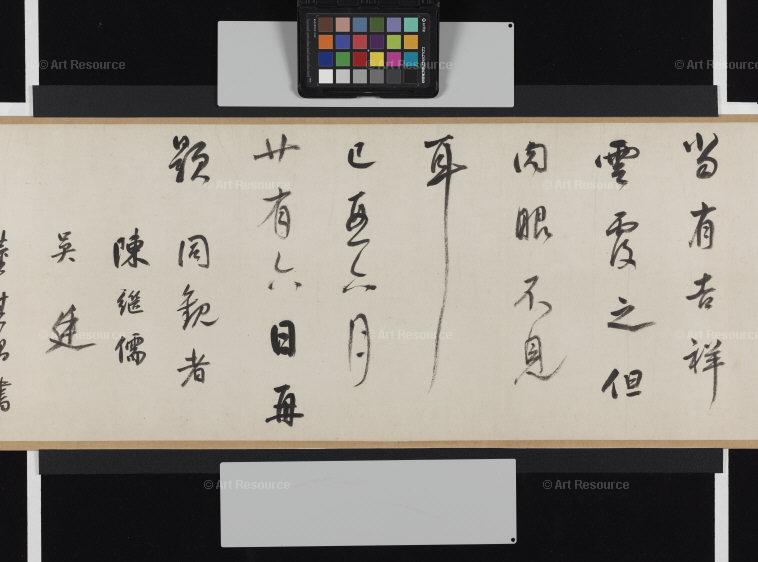 当有吉祥
雲覆之但
肉眼不見
耳
己亥六月
廿有六日再
題 同觀者
陳継儒
吳廷
董其昌書
© Art Resource
© Art Resource
© Art Resource
© Art Resource
© Art Resource
© Art Resource
© Art Resource
© Art Resource
© Art Resource
© Art Resource